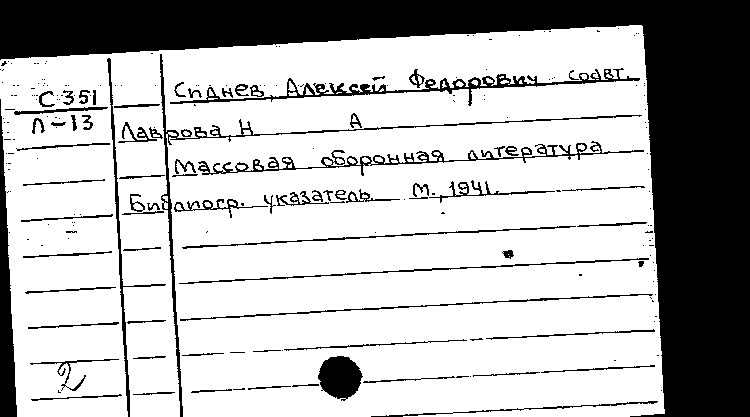 С351
Л-13
Спднев, Алексей Федорович соавт.
Лаврова, Н А
Массовая оборонная литература
Библиогр. указатель М., 1941.
2